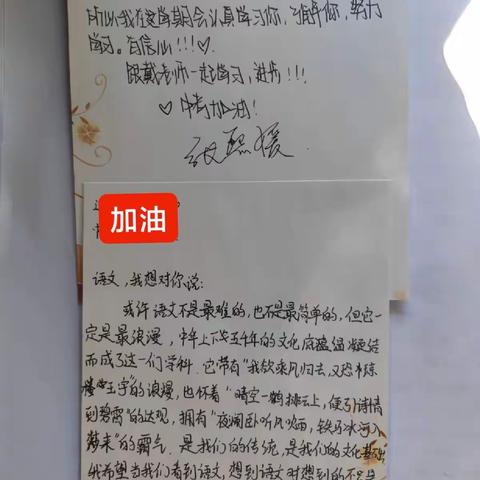 所以我在这学期会认真学习你,了解你,努力
学习。有信心!!!♡
跟戴老师一起学习,进步!!!
♡中考加油!
加油
语文,我想对你说:
或许语文不是最难的,也不是最简单的,但它一
定是最浪漫,中华上下五千年的文化底蕴凝结
而成了这一们学科.它带有“我欲乘风归去,又恐琼
楼玉宇”的浪漫,也怀着“晴空一鹤排云上,便引诗情
到碧霄”的达观,拥有“夜阑卧听风吹雨,铁马冰河入
梦来”的霸气.是我们的传统,是我们的文化基础
我希望当我们看到语文,想到语文时想到的不是